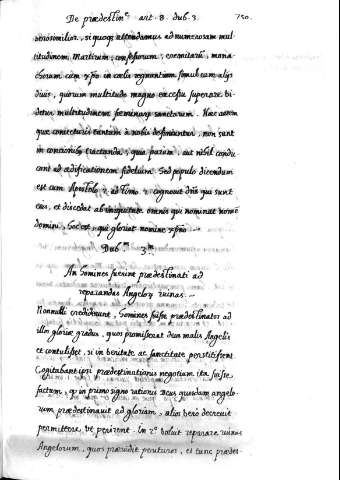 De prædestin.e art. 8. dub. 3. 750.
verosimilior, si quoq; attendamus ad numerosam mul
titudinem Martirum, confessorum, coenitarū, mona-
chorum cum xp̃o in cœlis regnantium simul cum alijs
diuis, quorum multitudo magno excessu superare vi-
detur multitudinem fœminarum sanctarum. Hæc autem
quæ coniecturis tantum à nobis definiuntur, non sunt
in concionibus tractanda, quia parum, aut nihil condu
cunt ad ædificationem fidelium. Sed populo dicendum
est cum Apostolo 2. ad Timo. 2. cognouit dñs qui sunt
eius, et discedat ab iniquitate omnis qui nominat nomē
domini, hoc est, qui gloriat nomine xp̃no
Dub.m 3.m
An homines fuerint prædestinati ad
reparandas Angeloꝝ ruinas.
Nonnulli crediderunt, homines fuisse prædestinatos ad
illos gloriæ gradus, quos promiserat deus malis Angelis
et contulisset, si in veritate ac sanctitate perstitissent
Cogitabant ipsi prædestinationis negotium ita fuisse
factum, q in primo signo rationis Deus quosdam angelo-
rum prædestinauit ad gloriam, alios vero decreuit
permittere vt perirent. In 2.o voluit reparare ruinas
Angelorum, quos præuidit perituros, et tunc prædes-